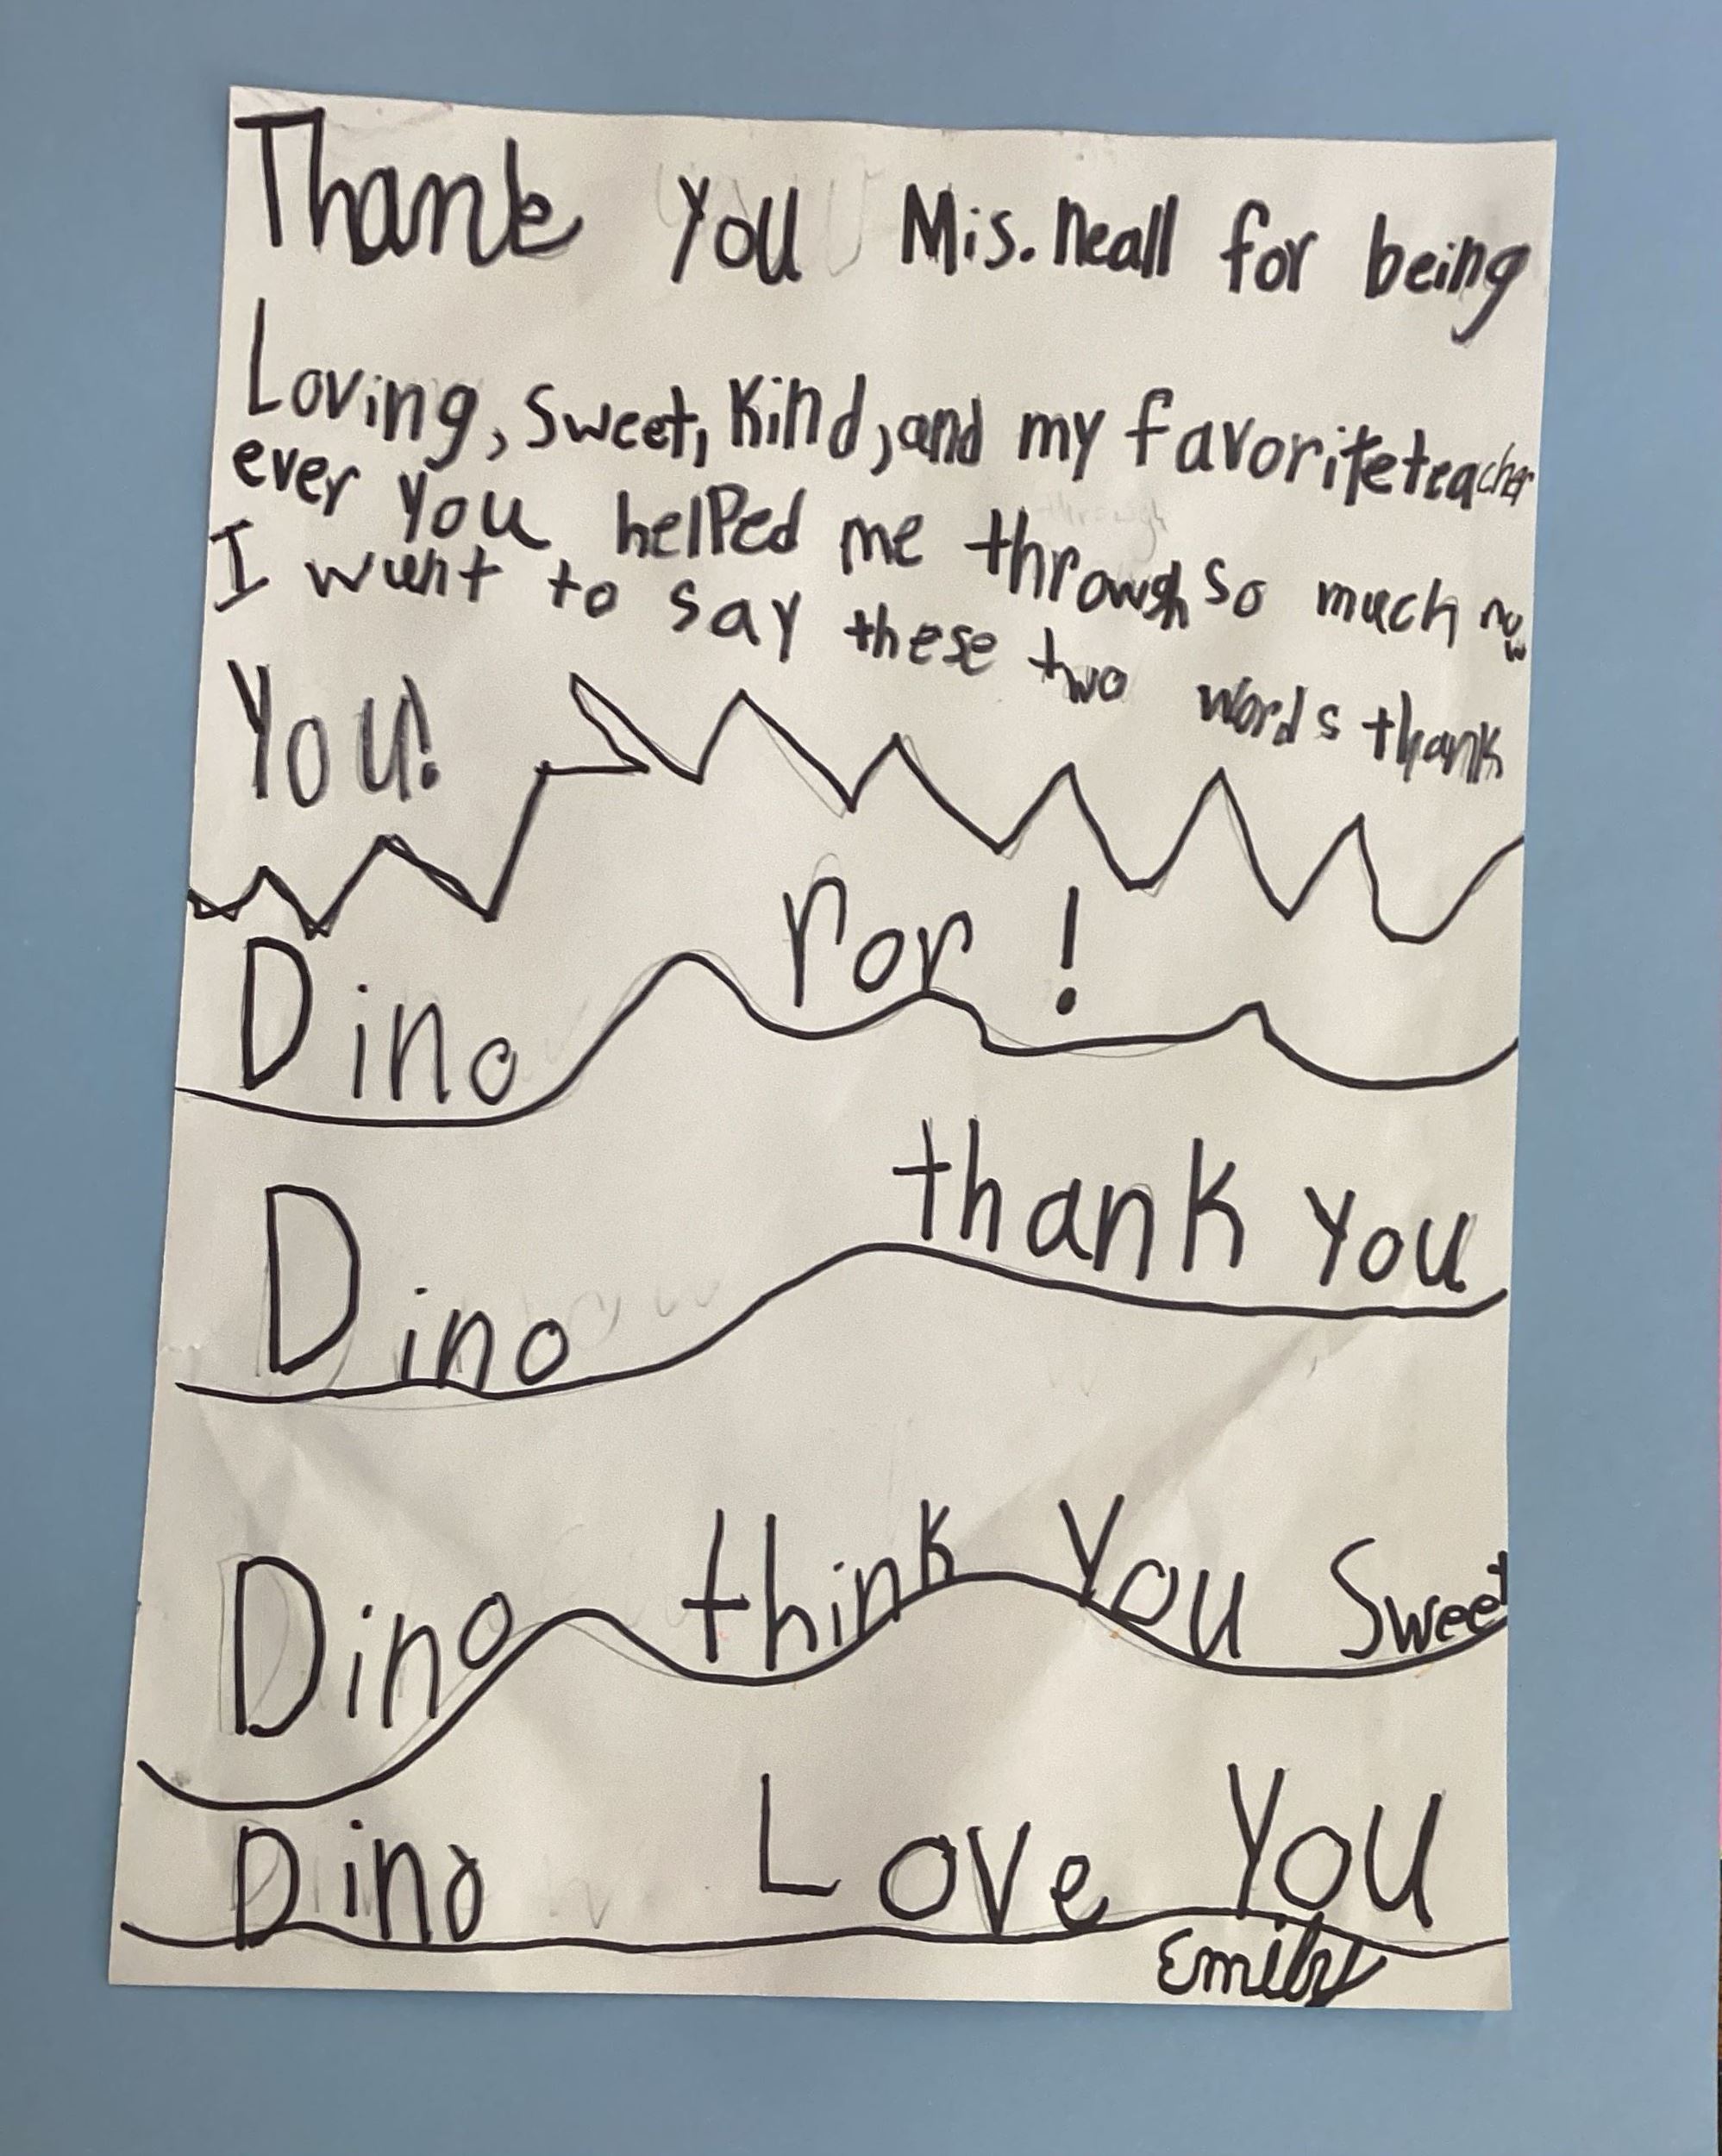 Thank You Mis. Neall for being
Loving, Sweet, Kind, and my favorite teacher
ever You helped me through so much now
I want to say these two words thank
You!
Dino ror !
Dino thank You
Dino think You Sweet
Dino Love You
Emily